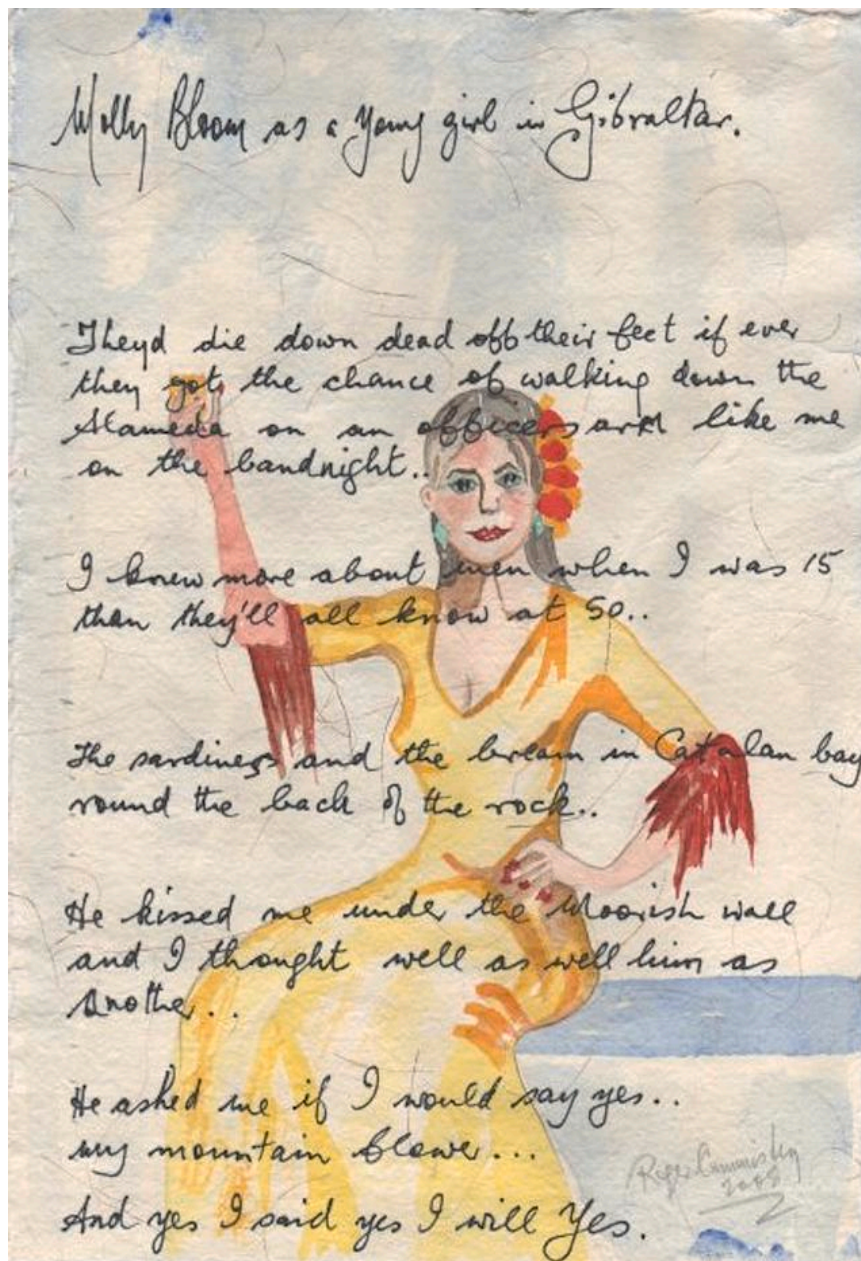 Molly Bloom as a young girl in Gibraltar.
Theyd die down dead off their feet if ever
they got the chance of walking down the
Alameda on an officers arm like me
on the bandnight..
I knew more about men when I was 15
than they'll all know at 50..
The sardines and the bream in Catalan bay
round the back of the rock..
He kissed me under the Moorish wall
and I thought well as well him as
another...
He asked me if I would say yes..
my mountain flower...
And yes I said yes I will Yes.
Roger Cummiskey
2008